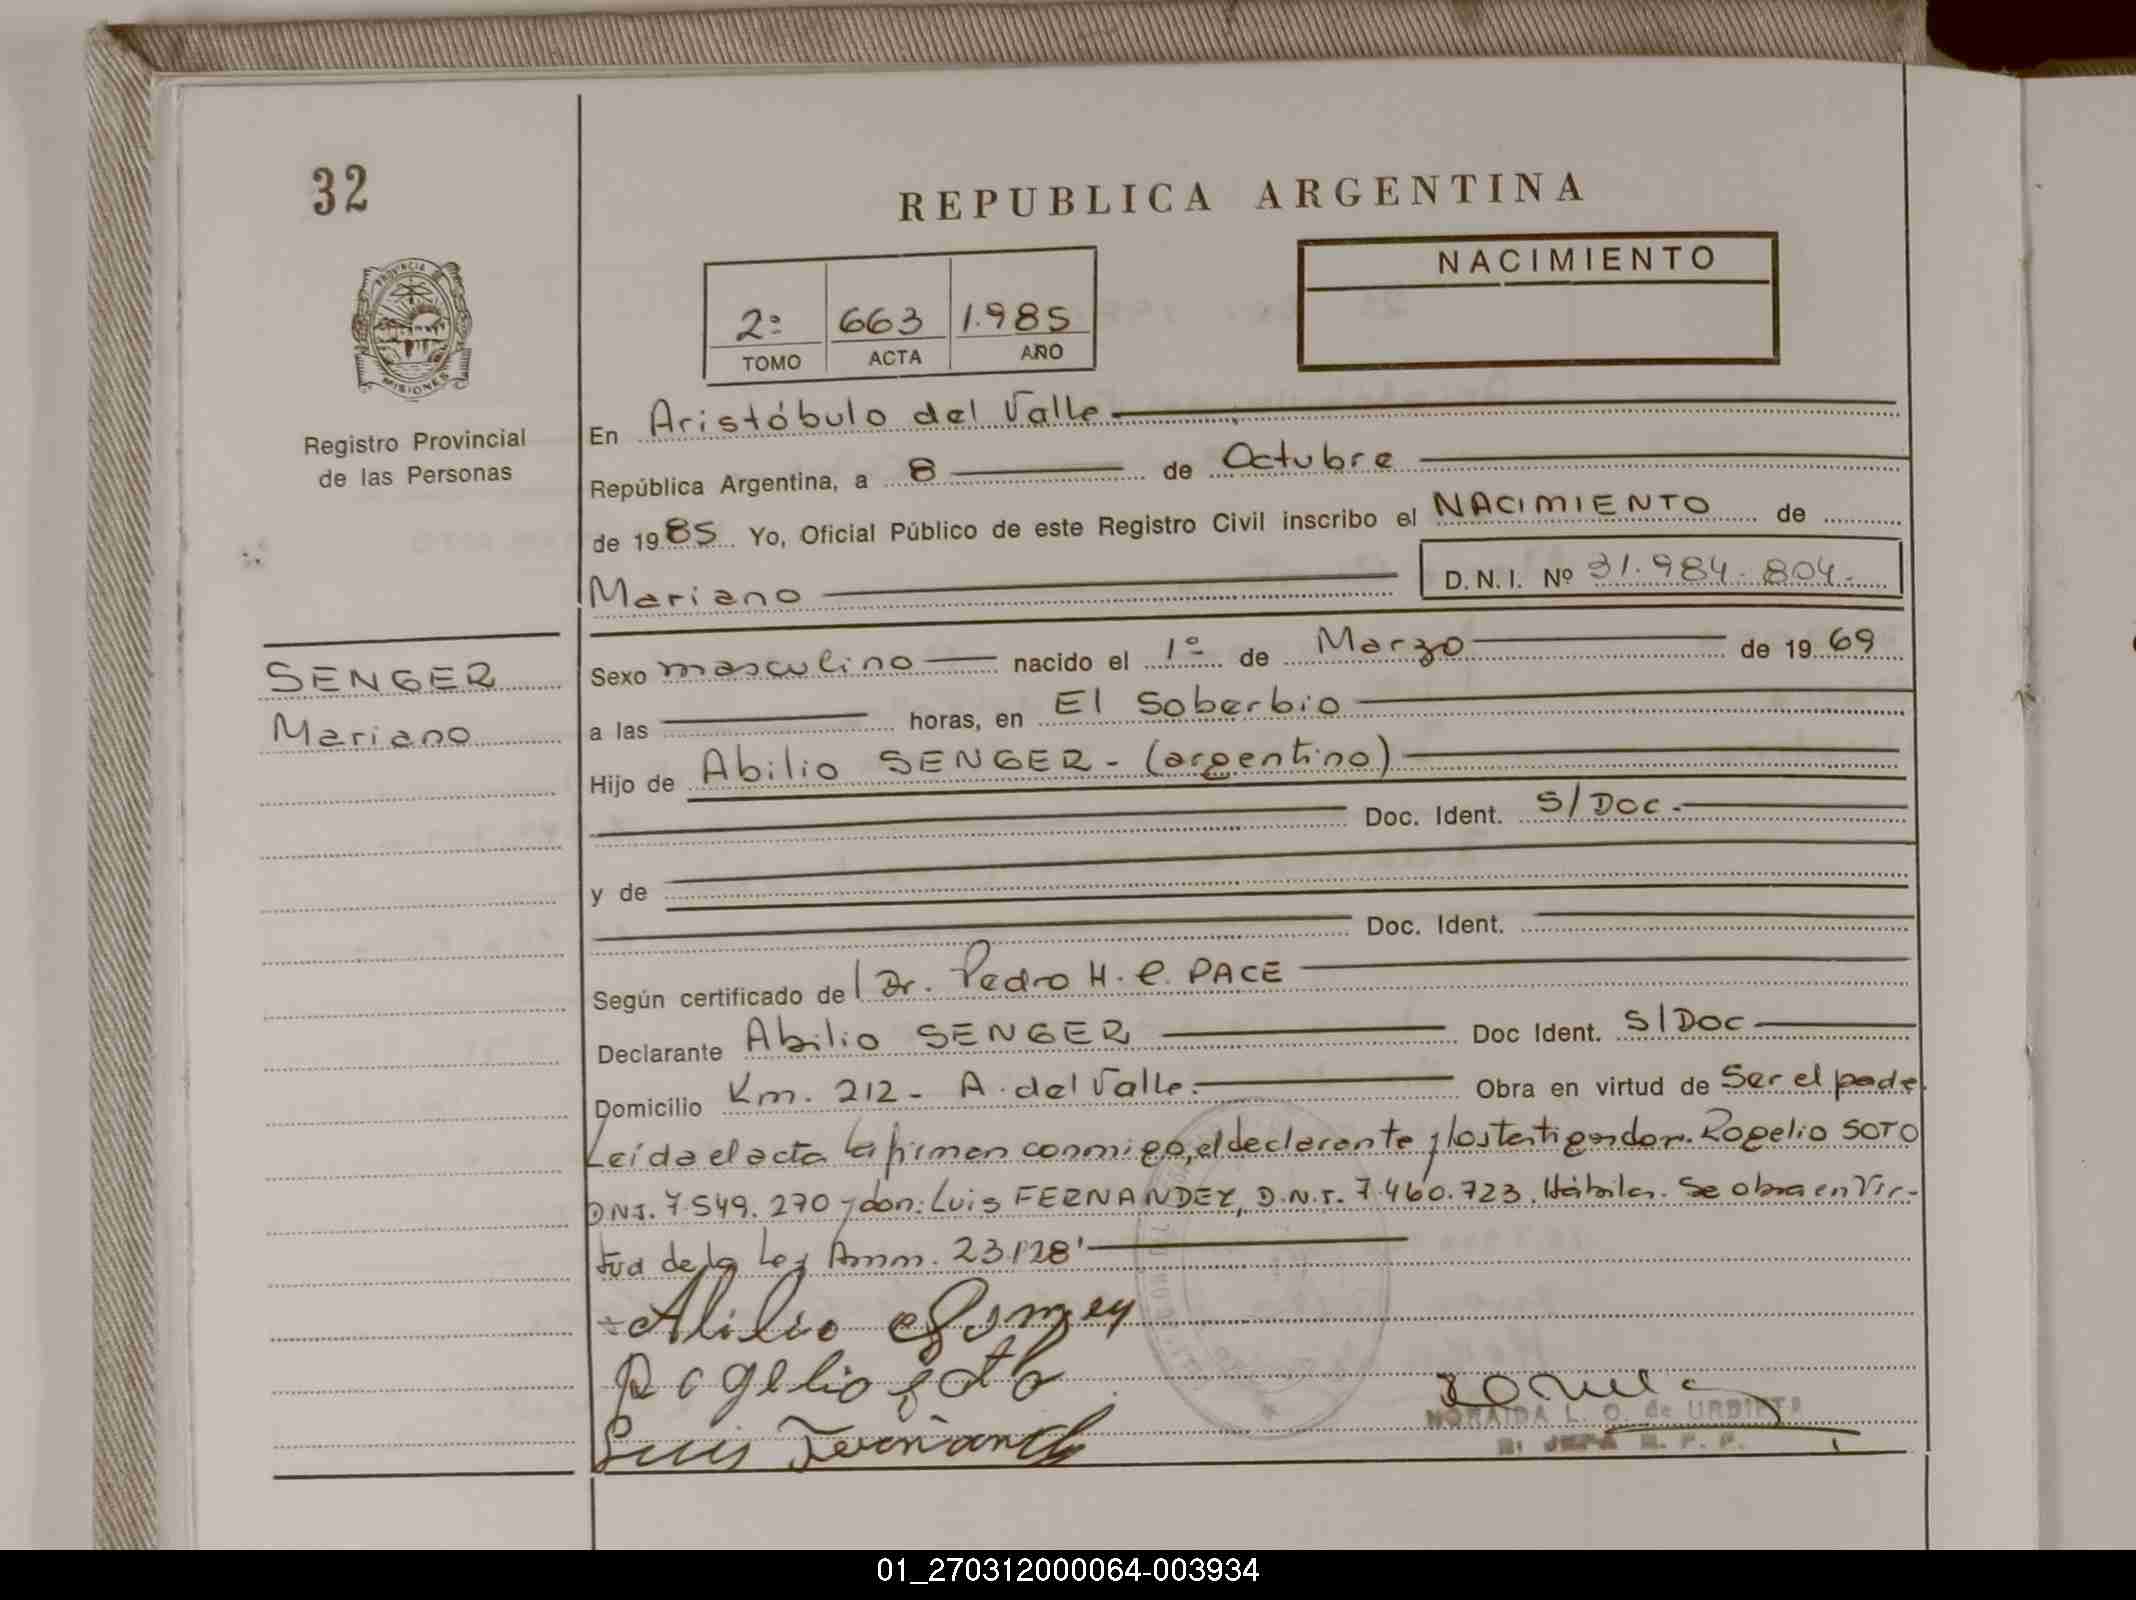 32
REPUBLICA ARGENTINA
NACIMIENTO
2º 663 1.985
TOMO ACTA AÑO
PROVINCIA DE
MISIONES
Registro Provincial
de las Personas
En Aristóbulo del Valle
República Argentina, a 8 de Octubre
de 1985 Yo, Oficial Público de este Registro Civil inscribo el NACIMIENTO de
Mariano D.N.I. Nº 31.984.804.-
SENGER
Mariano
Sexo masculino nacido el 1º de Marzo de 1969
a las horas, en El Soberbio
Hijo de Abilio SENGER - (argentino)
Doc. Ident. S/Doc.-
y de
Doc. Ident.
Según certificado de Dr. Pedro H. C. PACE
Declarante Abilio SENGER Doc Ident. S/Doc
Domicilio Km. 212 - A. del Valle.- Obra en virtud de Ser el padre
Leída el acta la firman conmigo, el declarante y los testigos don. Rogelio SOTO
DNI. 7.549.270 y don: Luis FERNANDEZ, D.N.I. 7.460.723. Hábiles. Se obra en Vir-
tud de la Ley Amn. 23128'
Abilio
Rogelio Soto
Luis Fernandez
NORAIDA L. O. de URBIETA
JEFA R. P. P.
01_270312000064-003934